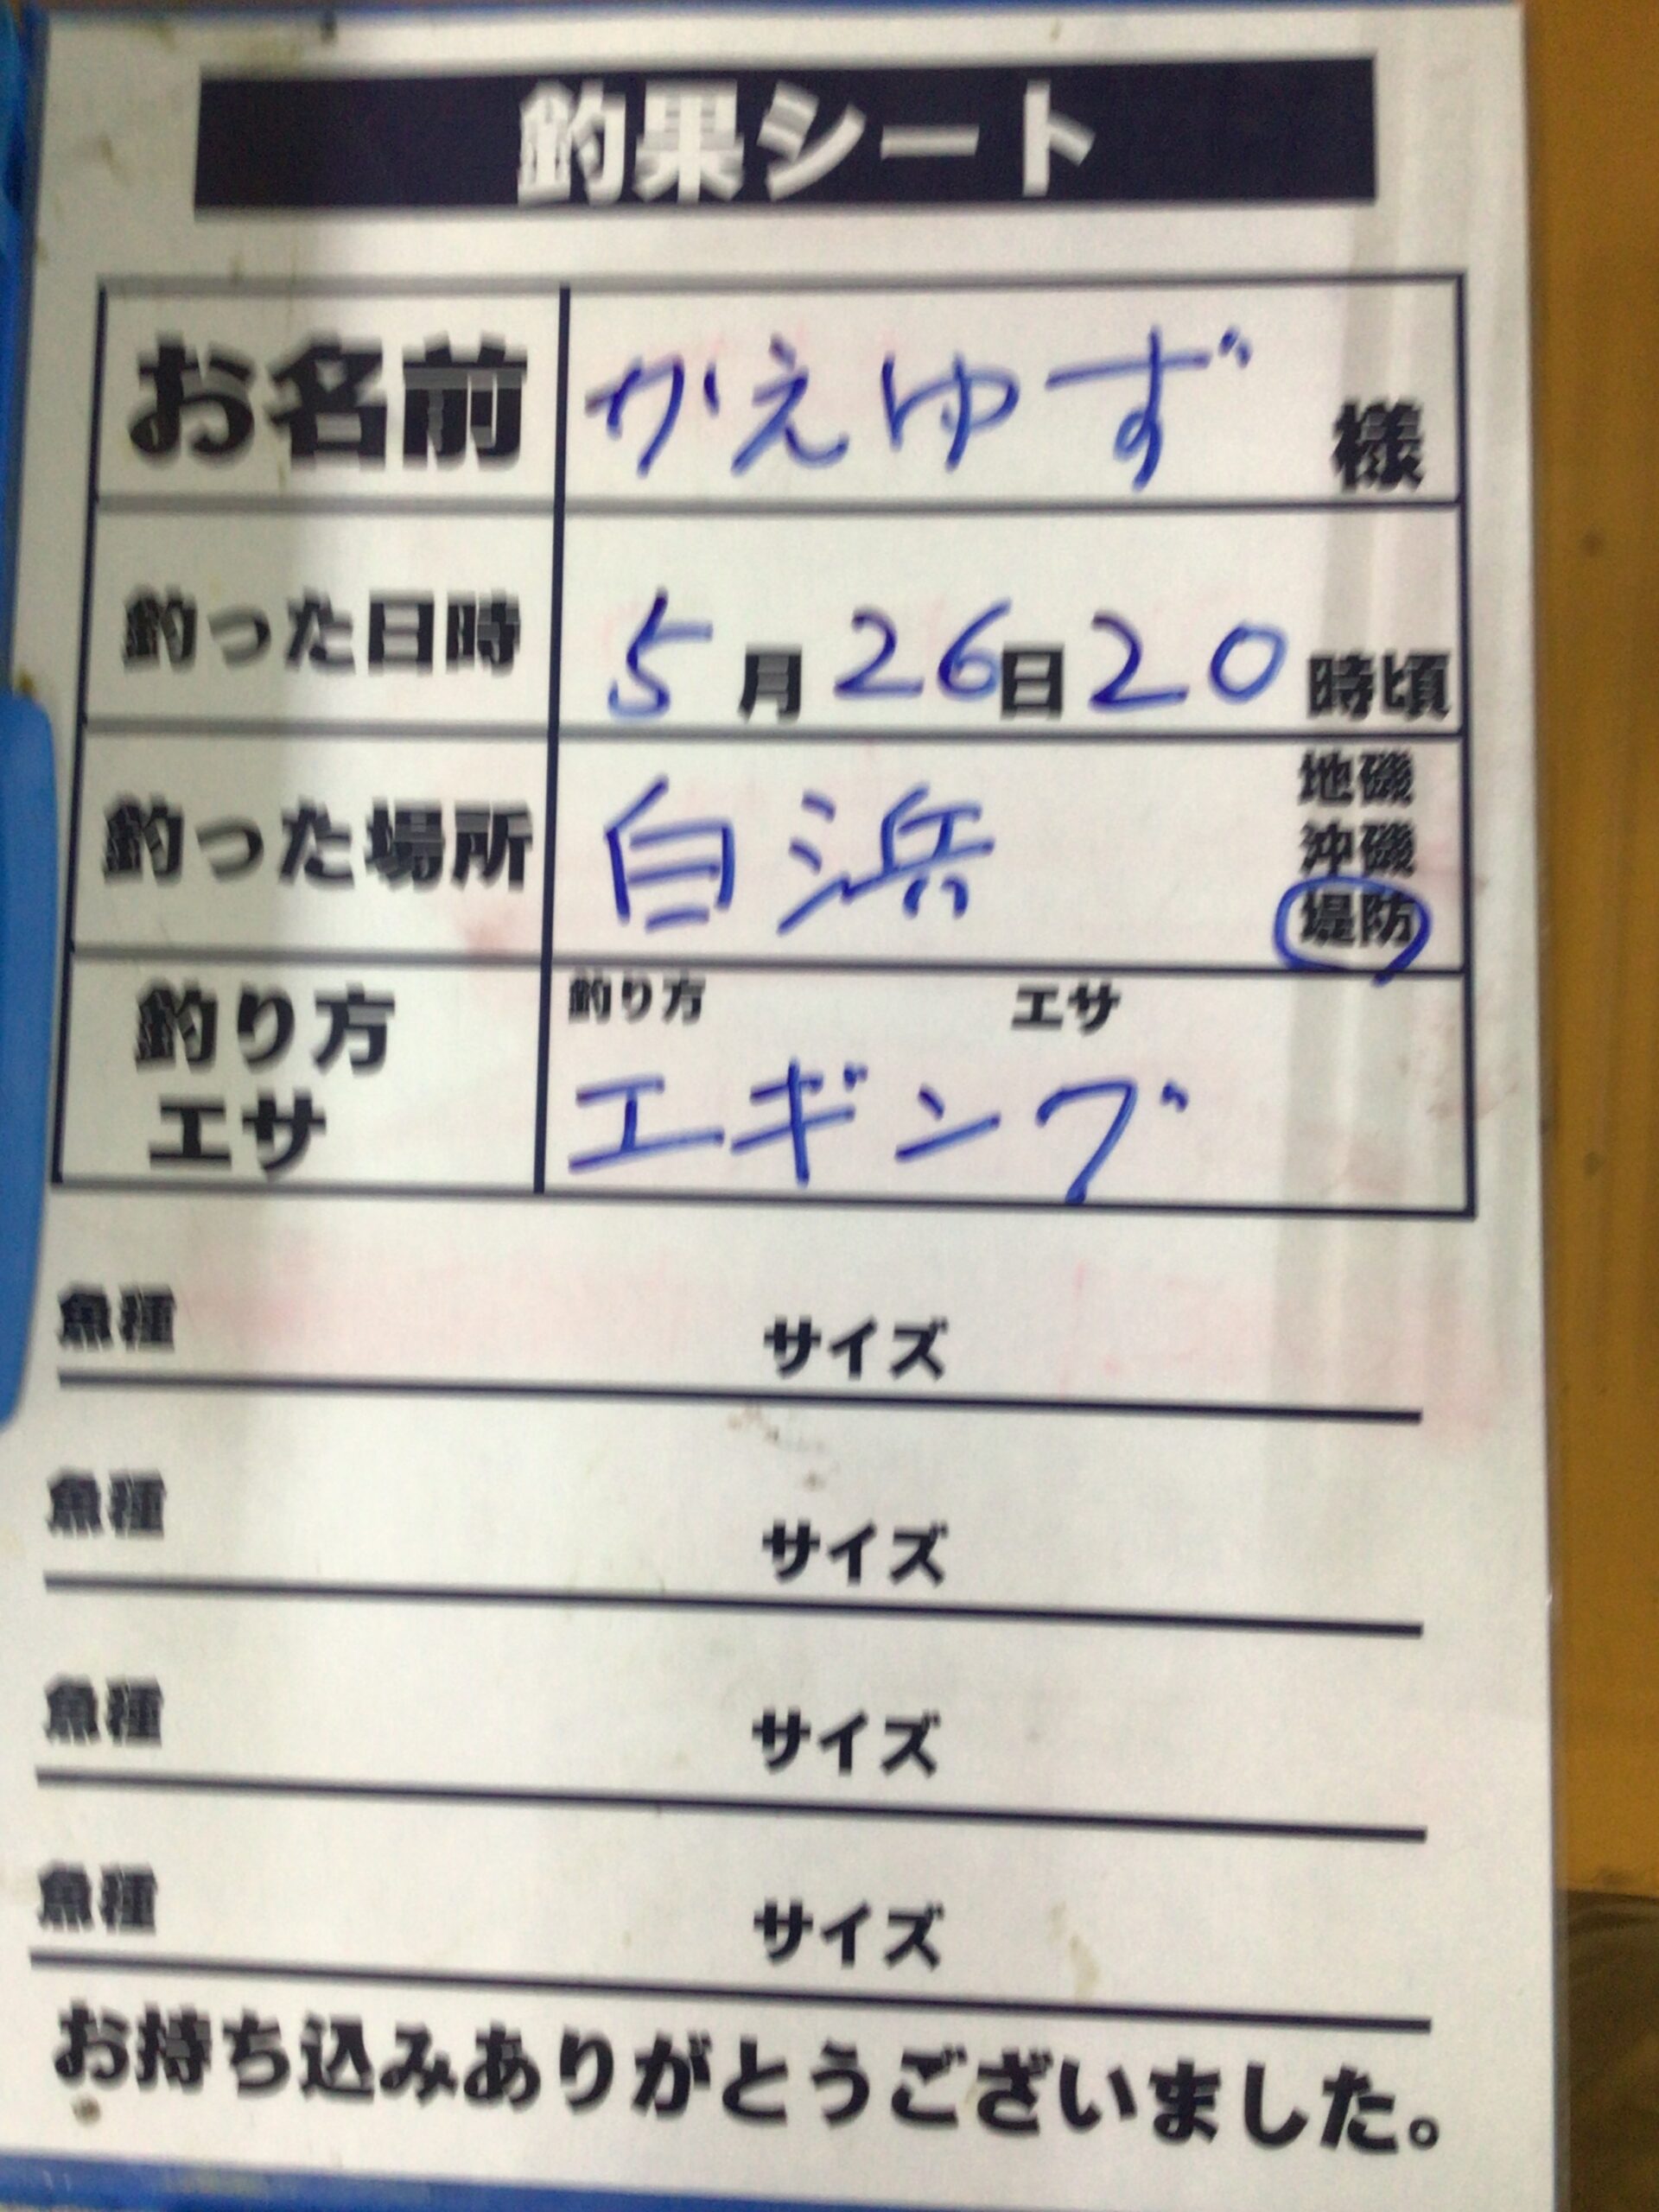 釣果シート
お名前 かえゆず 様
釣った日時 5月26日20時頃
釣った場所 白浜 地磯
沖磯
堤防
釣り方 釣り方 エサ
エサ エギング
魚種 サイズ
魚種 サイズ
魚種 サイズ
魚種 サイズ
お持ち込みありがとうございました。